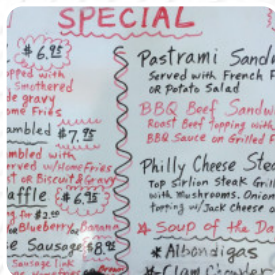 SPECIAL
$6.95
opped with
Smothered
de gravy
ome Fries
ambled $7.95
mbled with
erved w/HomeFries
st or Biscuit & Gravy
affle $6.95
ng for $2.00
Blueberry, Banana
e Sausage $8.95
Sausage link
Pastrami Sand
Served with French F
or Potato Salad
BBQ Beef Sandw
Roast Beef topping with
BBQ Sauce on Grilled F
Philly Cheese Stea
Top Sirlion Steak Gril
with Mushrooms, Onion
topping w/Jack Cheese o
Soup of the Da
*Albondigas
*Clam Chowde